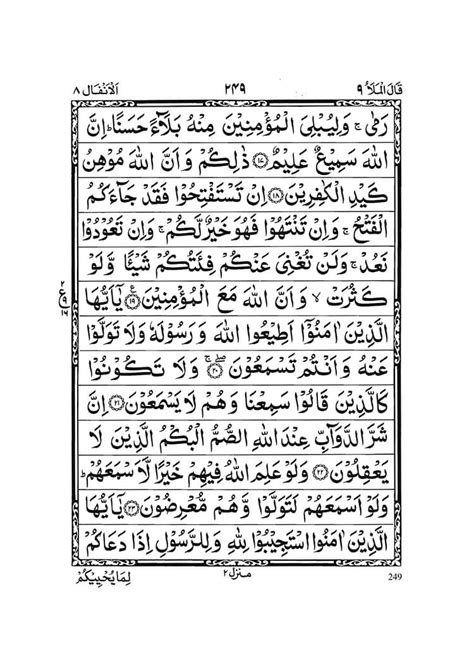 قَالَ الْمَلَاُ ٩ ٢٤٩ اَلْاَنْفَال ٨
رَمٰى ۚ وَلِيُبْلِىَ الْمُؤْمِنِيْنَ مِنْهُ بَلَآءً حَسَنًا ؕ اِنَّ
اللّٰهَ سَمِيْعٌ عَلِيْمٌ ﴿۱۷﴾ ذٰلِكُمْ وَ اَنَّ اللّٰهَ مُوْهِنُ
كَيْدِ الْكٰفِرِيْنَ ﴿۱۸﴾ اِنْ تَسْتَفْتِحُوْا فَقَدْ جَآءَكُمُ
الْفَتْحُ ۚ وَاِنْ تَنْتَهُوْا فَهُوَ خَيْرٌ لَّكُمْ ۚ وَاِنْ تَعُوْدُوْا
نَعُدْ ۚ وَلَنْ تُغْنِىَ عَنْكُمْ فِئَتُكُمْ شَيْـًٔا وَّلَوْ
كَثُرَتْ ۙ وَ اَنَّ اللّٰهَ مَعَ الْمُؤْمِنِيْنَ ﴿۱۹﴾ يٰۤاَيُّهَا
٢ ع ٩ ١٦
الَّذِيْنَ اٰمَنُوْۤا اَطِيْعُوا اللّٰهَ وَ رَسُوْلَهٗ وَلَا تَوَلَّوْا
عَنْهُ وَ اَنْتُمْ تَسْمَعُوْنَ ﴿۲۰﴾ ۚۖ وَلَا تَكُوْنُوْا
كَالَّذِيْنَ قَالُوْا سَمِعْنَا وَهُمْ لَا يَسْمَعُوْنَ ﴿۲۱﴾ اِنَّ
شَرَّ الدَّوَآبِّ عِنْدَ اللّٰهِ الصُّمُّ الْبُكْمُ الَّذِيْنَ لَا
يَعْقِلُوْنَ ﴿۲۲﴾ وَلَوْ عَلِمَ اللّٰهُ فِيْهِمْ خَيْرًا لَّاَسْمَعَهُمْ ؕ
وَلَوْ اَسْمَعَهُمْ لَتَوَلَّوْا وَّهُمْ مُّعْرِضُوْنَ ﴿۲۳﴾ يٰۤاَيُّهَا
الَّذِيْنَ اٰمَنُوا اسْتَجِيْبُوْا لِلّٰهِ وَلِلرَّسُوْلِ اِذَا دَعَاكُمْ
لِمَا يُحْيِيْكُمْ منزل ٢ 249